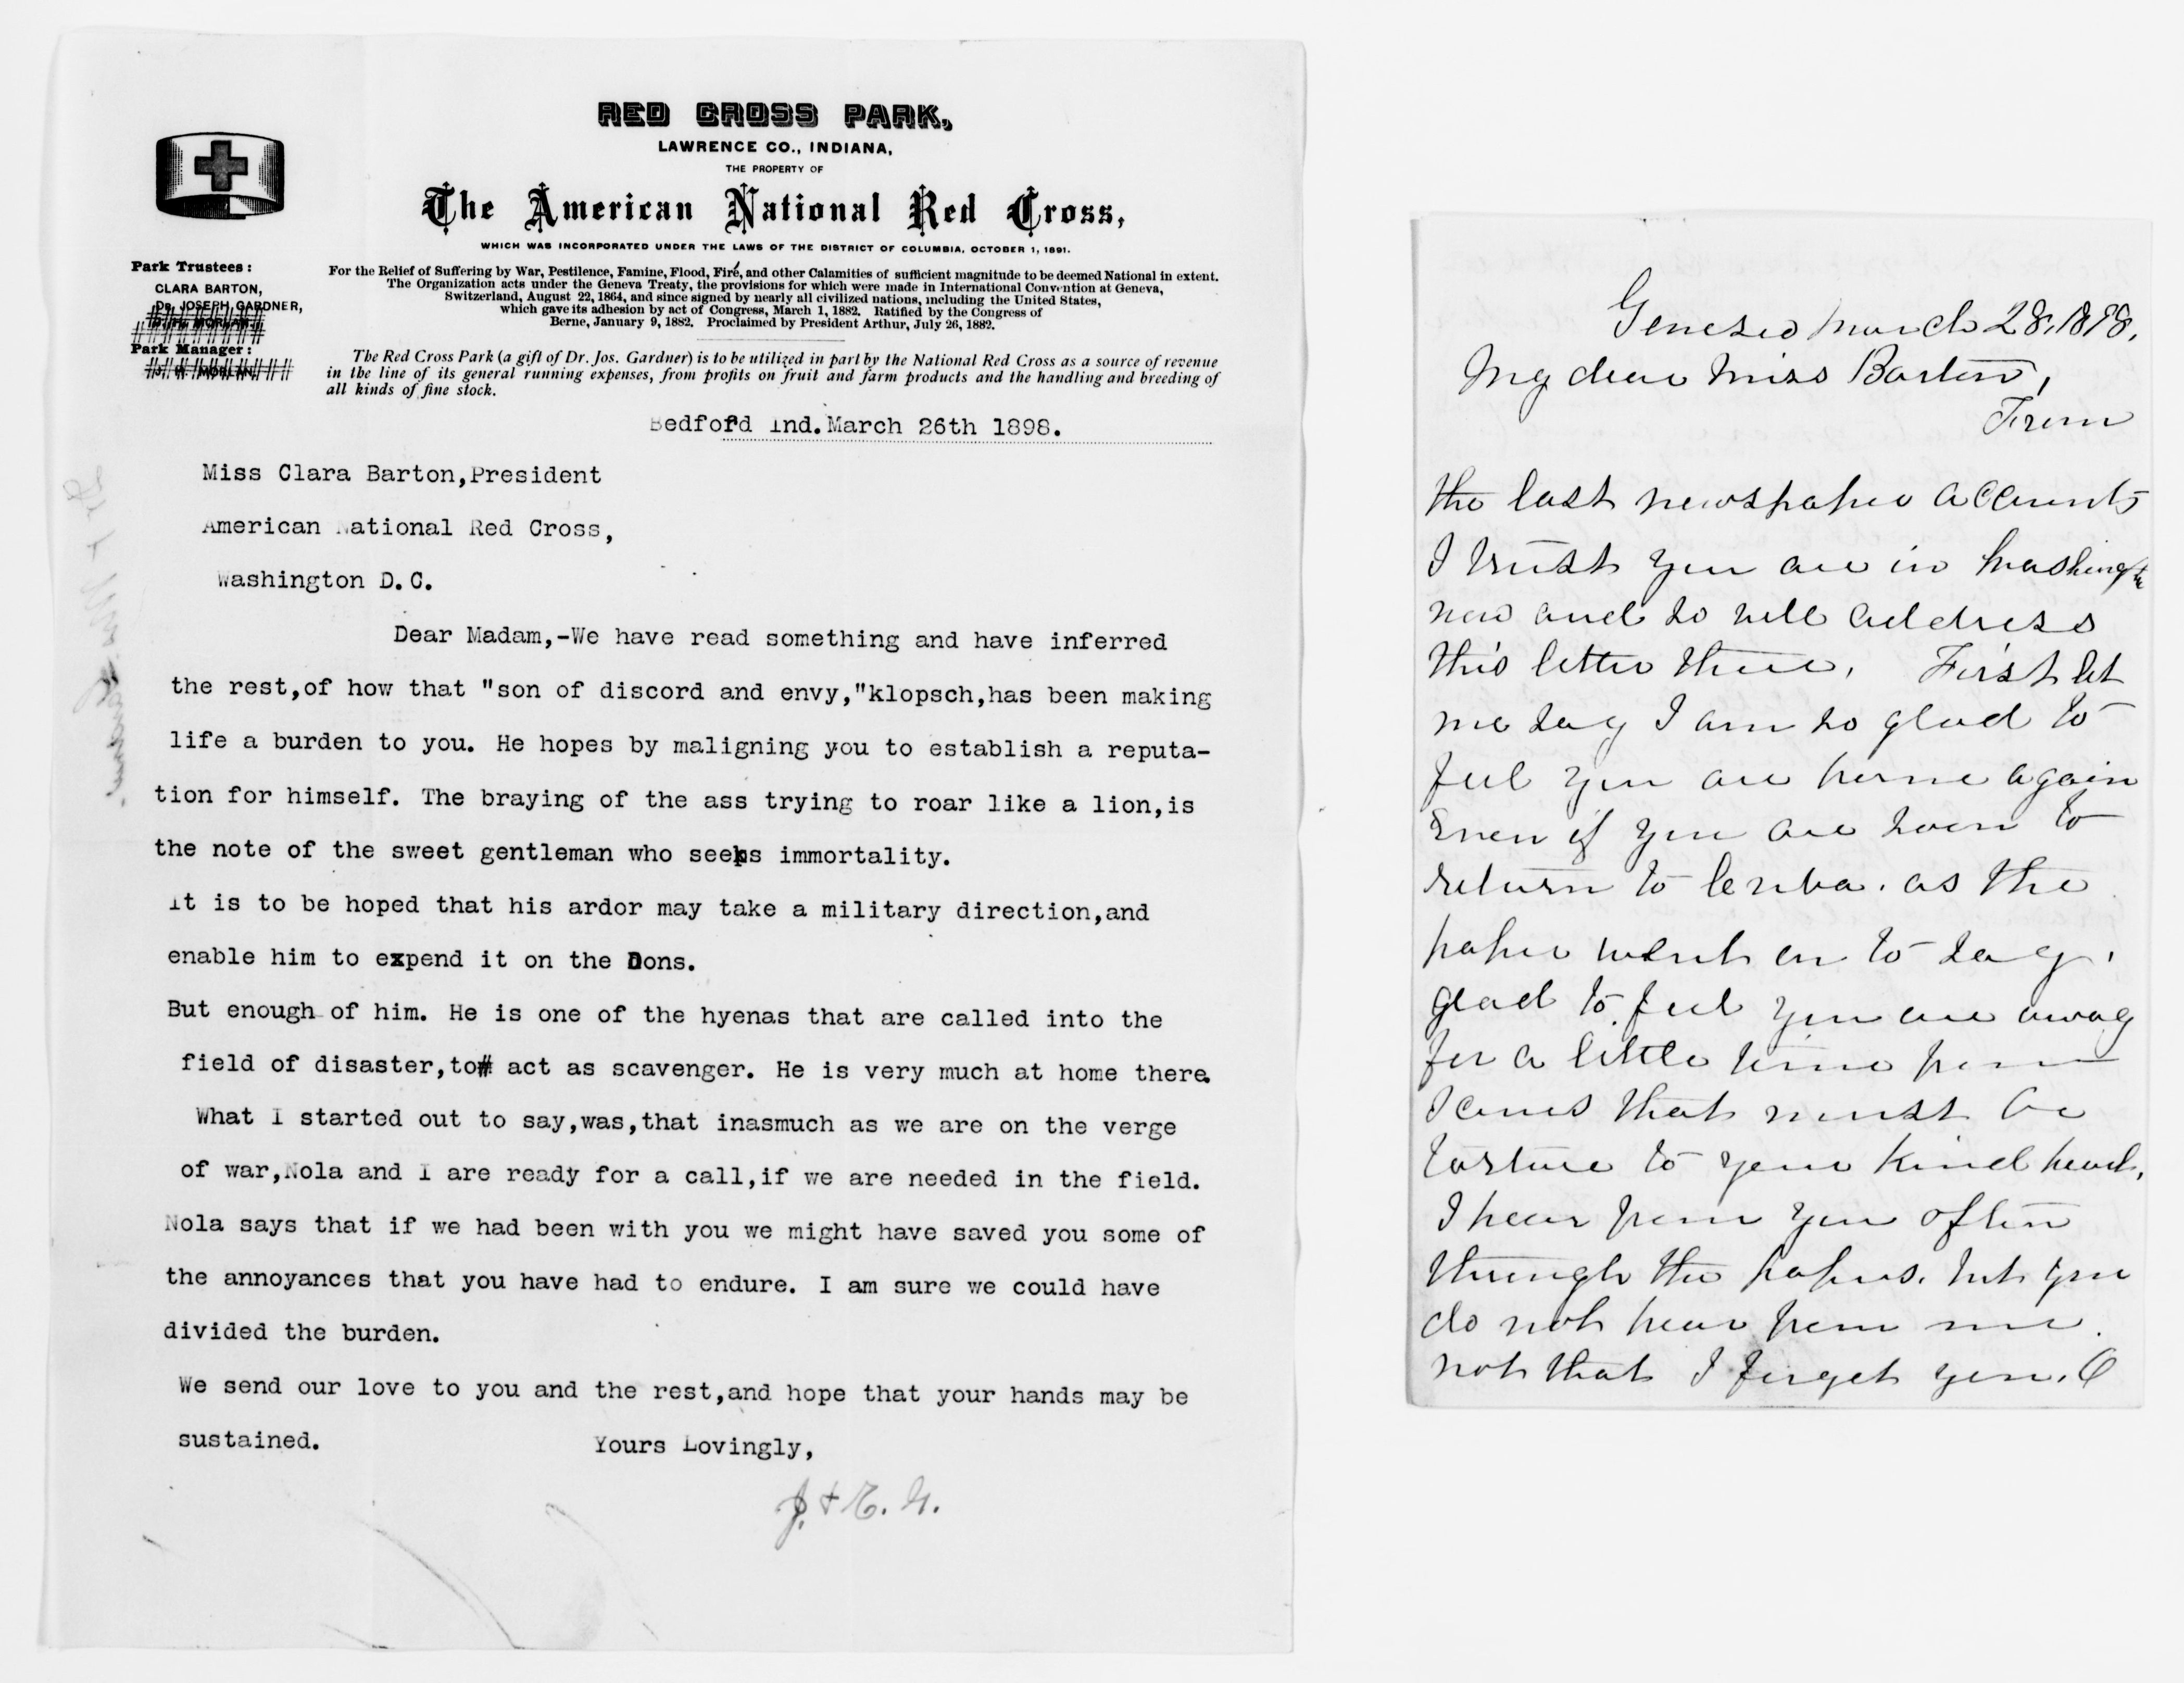 RED CROSS PARK,
LAWRENCE CO., INDIANA,
THE PROPERTY OF
The American National Red Cross,
WHICH WAS INCORPORATED UNDER THE LAWS OF THE DISTRICT OF COLUMBIA, OCTOBER 1, 1891.
Park Trustees:
CLARA BARTON,
Dr. JOSEPH GARDNER,
Park Manager:
For the Relief of Suffering by War, Pestilence, Famine, Flood, Fire, and other Calamities of sufficient magnitude to be deemed National in extent.
The Organization acts under the Geneva Treaty, the provisions for which were made in International Convention at Geneva,
Switzerland, August 22, 1864, and since signed by nearly all civilized nations, including the United States,
which gave its adhesion by act of Congress, March 1, 1882. Ratified by the Congress of
Berne, January 9, 1882. Proclaimed by President Arthur, July 26, 1882.
The Red Cross Park (a gift of Dr. Jos. Gardner) is to be utilized in part by the National Red Cross as a source of revenue
in the line of its general running expenses, from profits on fruit and farm products and the handling and breeding of
all kinds of fine stock.
Bedford Ind. March 26th 1898.
Miss Clara Barton, President
American National Red Cross,
Washington D.C.
Dear Madam,-We have read something and have inferred
the rest,of how that "son of discord and envy,"klopsch,has been making
life a burden to you. He hopes by maligning you to establish a reputa-
tion for himself. The braying of the ass trying to roar like a lion,is
the note of the sweet gentleman who seeks immortality.
It is to be hoped that his ardor may take a military direction,and
enable him to expend it on the Dons.
But enough of him. He is one of the hyenas that are called into the
field of disaster,to act as scavenger. He is very much at home there.
What I started out to say,was,that inasmuch as we are on the verge
of war,Nola and I are ready for a call,if we are needed in the field.
Nola says that if we had been with you we might have saved you some of
the annoyances that you have had to endure. I am sure we could have
divided the burden.
We send our love to you and the rest,and hope that your hands may be
sustained. Yours Lovingly,
J. & E. G.
Geneseo March 28, 1898.
My dear Miss Barton,
From
the last newspaper accounts
I trust you are in Washington
now and so will address
this letter there. First let
me say I am so glad to
feel you are home again
Even if you are soon to
return to Cuba. as the
paper went on to say,
glad to feel you are away
for a little time from
scenes that must be
torture to your kind heart,
I hear from you often
through the papers. but you
do not hear from me.
not that I forget you. O